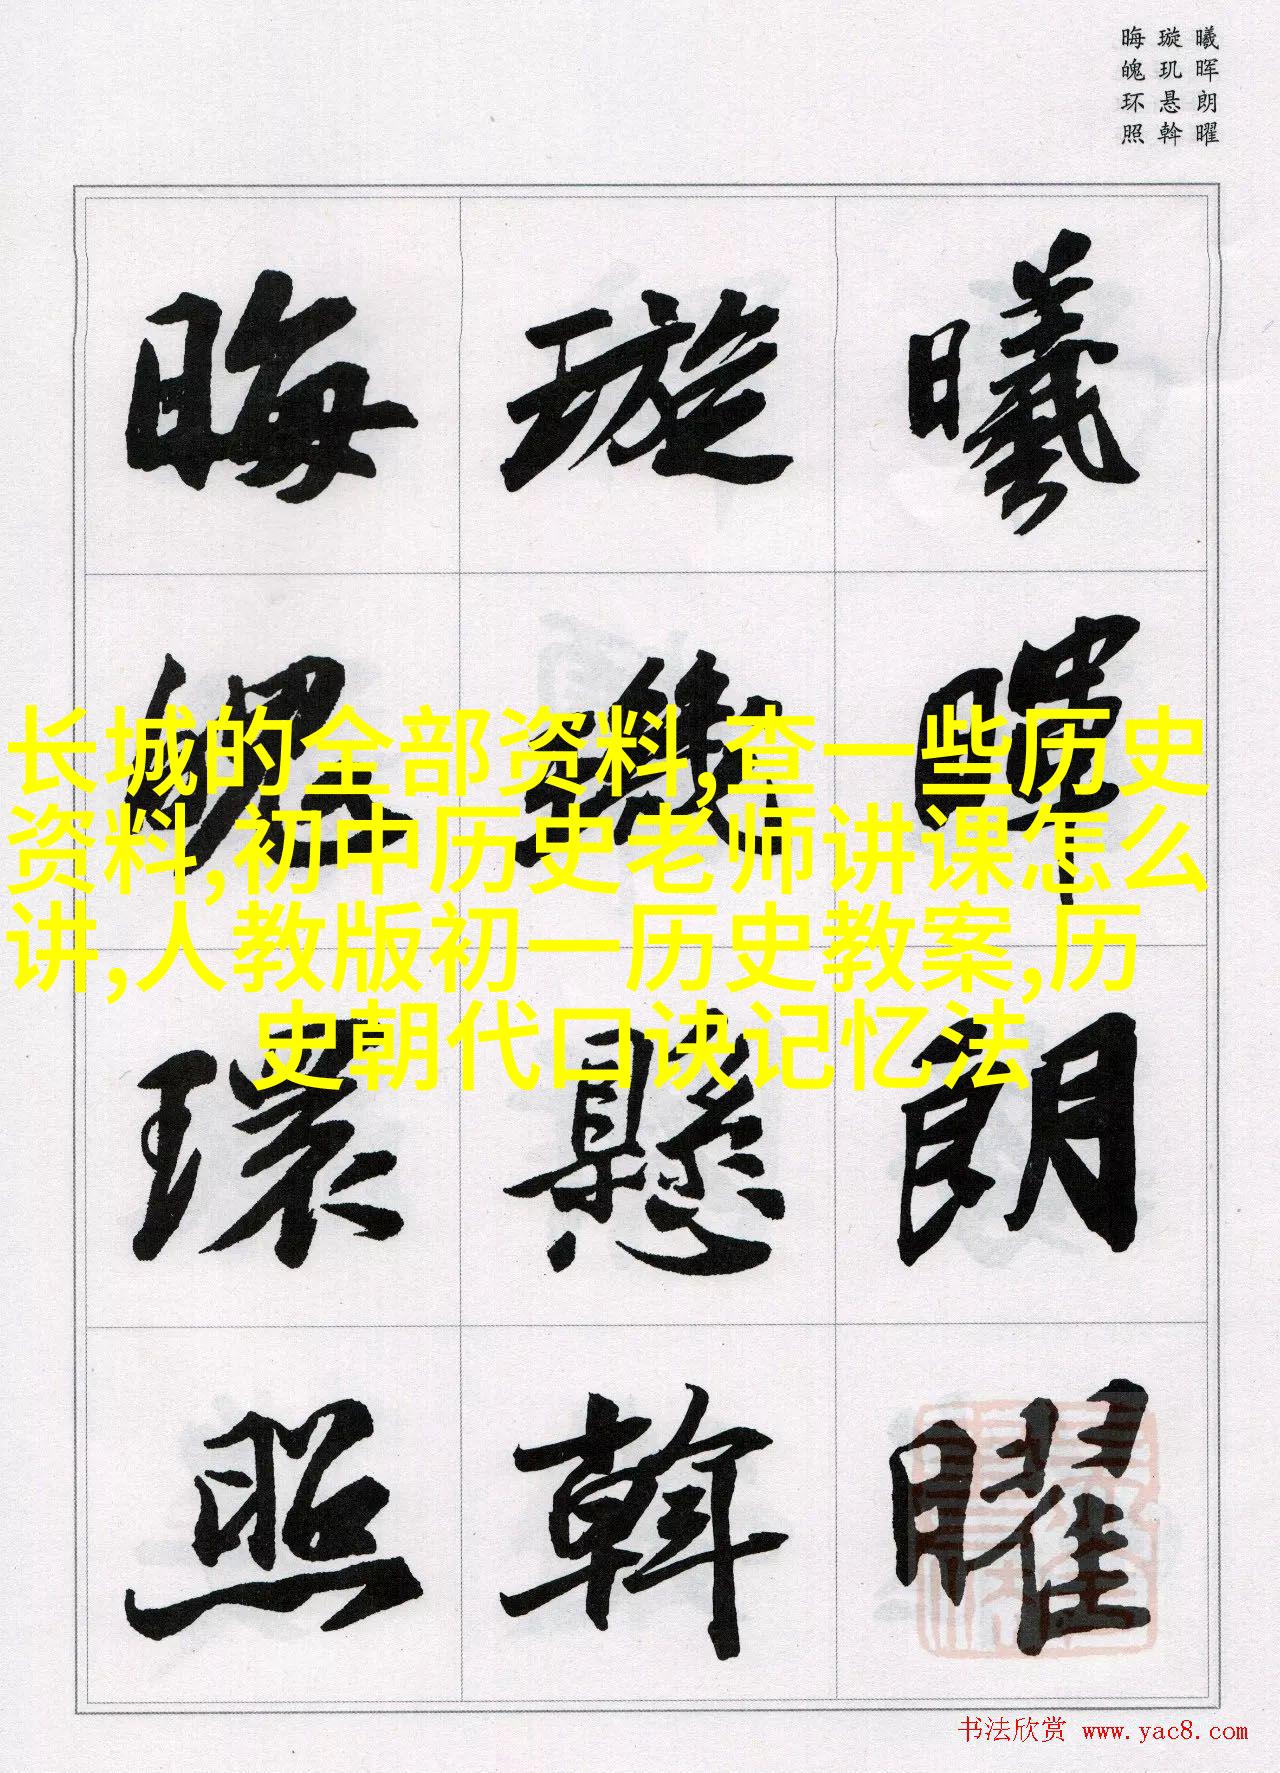 曦晖朗曜
璇玑悬斡
晦魄环照
曦暉朗曜
璇璣懸斡
晦魄環照
长城的全部资料,查一些历史
资料,初中历史老师讲课怎么
讲,人教版初一历史教案,历
史朝代口诀记忆法
书法欣赏 www.yac8.com